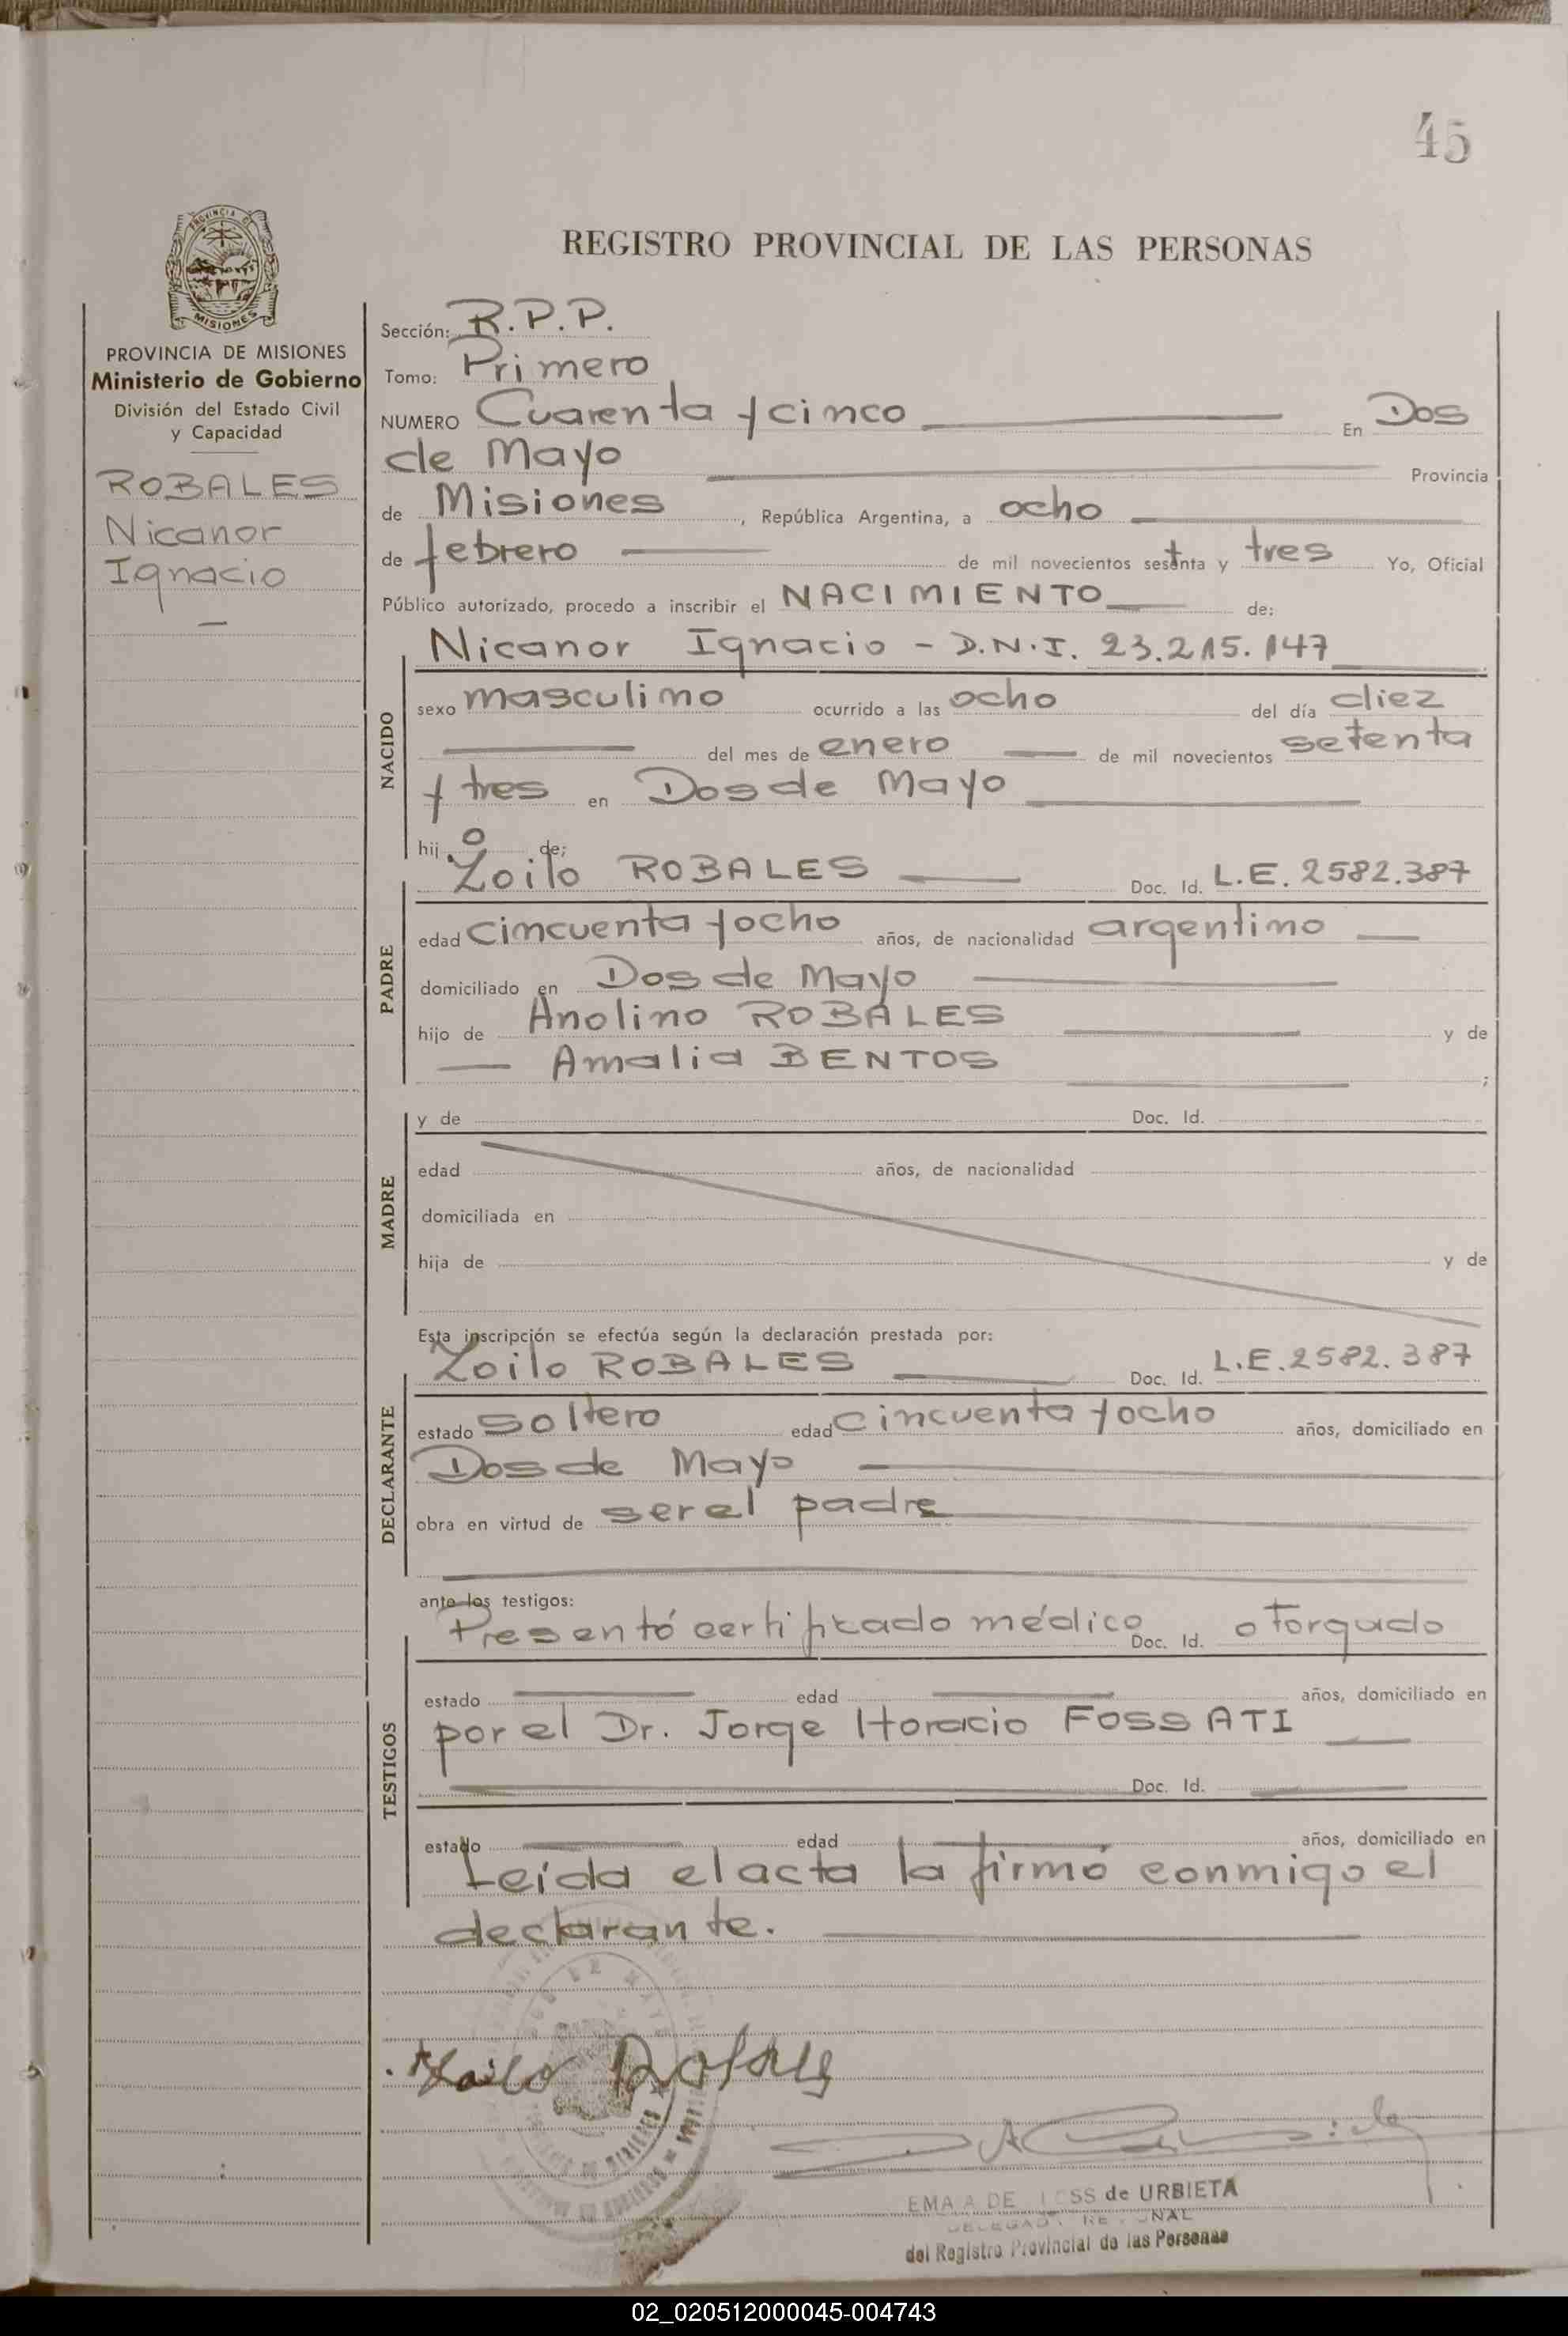 45
REGISTRO PROVINCIAL DE LAS PERSONAS
PROVINCIA DE
MISIONES
PROVINCIA DE MISIONES
Ministerio de Gobierno
División del Estado Civil
y Capacidad
ROBALES
Nicanor
Ignacio
Sección: R.P.P.
Tomo: Primero
NUMERO Cuarenta y cinco En Dos
de Mayo Provincia
de Misiones, República Argentina, a ocho
de febrero de mil novecientos setenta y tres Yo, Oficial
Público autorizado, procedo a inscribir el NACIMIENTO de:
NACIDO
Nicanor Ignacio - D.N.I. 23.215.147
sexo masculino ocurrido a las ocho del día diez
del mes de enero de mil novecientos setenta
y tres en Dos de Mayo
hijo de;
PADRE
Zoilo ROBALES Doc. Id. L.E. 2582.387
edad cincuenta y ocho años, de nacionalidad argentino
domiciliado en Dos de Mayo
hijo de Anolino ROBALES y de
Amalia BENTOS ;
MADRE
y de Doc. Id.
edad años, de nacionalidad
domiciliada en
hija de y de
Esta inscripción se efectúa según la declaración prestada por:
DECLARANTE
Zoilo ROBALES Doc. Id. L.E. 2582.387
estado soltero edad cincuenta y ocho años, domiciliado en
Dos de Mayo
obra en virtud de ser el padre
ante los testigos:
TESTIGOS
Presentó certificado médico Doc. Id. otorgado
estado edad años, domiciliado en
por el Dr. Jorge Horacio FOSSATI
Doc. Id.
estado edad años, domiciliado en
Leída el acta la firmó conmigo el
declarante.
Zoilo Robales
de URBIETA
del Registro Provincial de las Personas
02_020512000045-004743